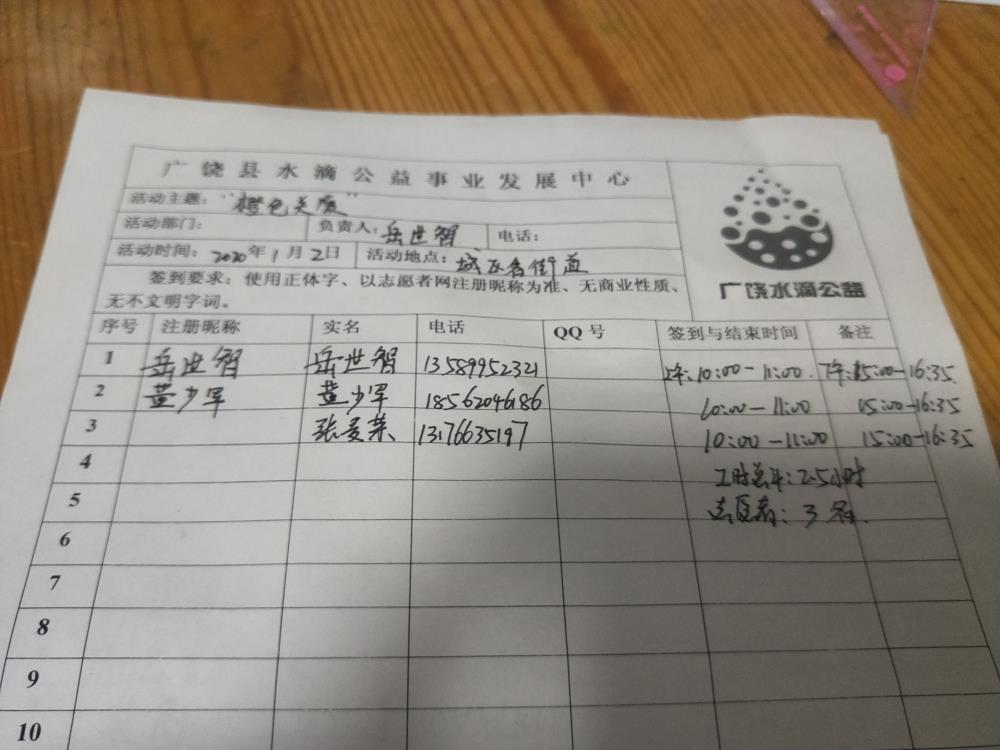 广饶县水滴公益事业发展中心
活动主题：“橙色关爱”
活动部门： 负责人：岳世智 电话：
活动时间：2020年1月2日 活动地点：城区各街道
签到要求：使用正体字、以志愿者网注册昵称为准、无商业性质、
无不文明字词。
广饶水滴公益
序号 注册昵称 实名 电话 QQ号 签到与结束时间 备注
1 岳世智 岳世智 13589952321 上午:10:00-11:00. 下午:15:00-16:35.
2 董少军 董少军 18562046186 10:00-11:00 15:00-16:35
3 张爱荣 13176635197 10:00-11:00 15:00-16:35
4 工时总计:2.5小时
5 志愿者:3名.
6
7
8
9
10